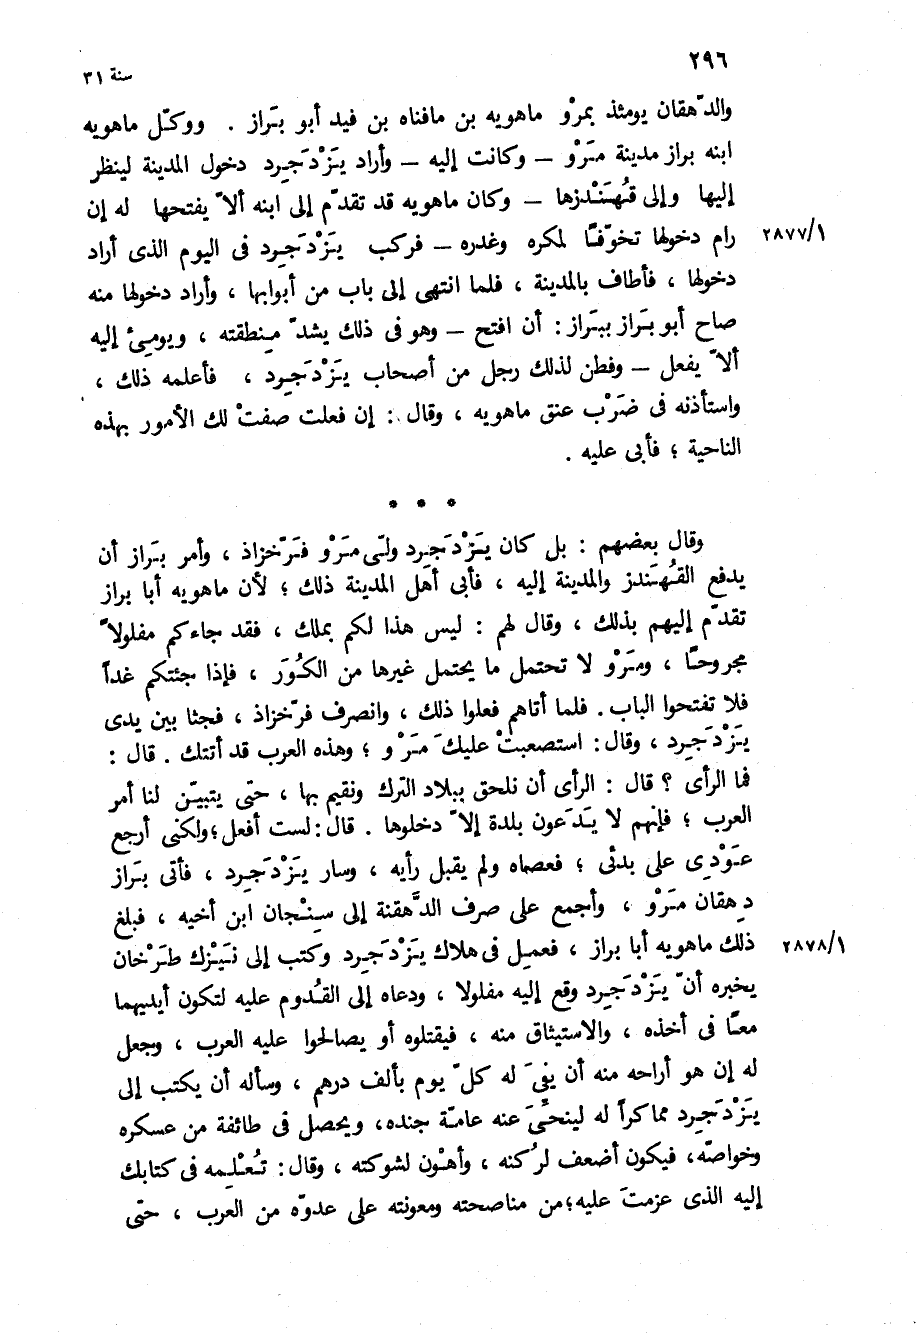 ٢٩٦
سنة ٣١
والدّهقان يومئذ بمرْو ماهويه بن مافناه بن فيد أبو بَراز . ووكّل ماهويه
ابنه براز مدينة مَرْو – وكانت إليه – وأراد يَزْدَجِرد دخول المدينة لينظر
إليها وإلى قُهَنْدزها – وكان ماهويه قد تقدّم إلى ابنه ألاّ يفتحها له إن
رام دخولها تخوّفًا لمكره وغدره – فركب يَزْدَجِرد فى اليوم الذى أراد
٢٨٧٧/١
دخولها ، فأطاف بالمدينة ، فلما انتهى إلى باب من أبوابها ، وأراد دخولها منه
صاح أبو بَراز ببَراز : أن افتح – وهو فى ذلك يشدّ مِنطقته ، ويومئ إليه
ألاّ يفعل – وفطن لذلك رجل من أصحاب يَزْدَجِرد ، فأعلمه ذلك ،
واستأذنه فى ضَرْب عنق ماهويه ، وقال : إن فعلت صفتْ لك الأمور بهذه
الناحية ؛ فأبى عليه .
* * *
وقال بعضهم : بل كان يَزْدَجِرد ولّى مَرْو فَرّخزاذ ، وأمر بَراز أن
يدفع القُهَندز والمدينة إليه ، فأبى أهل المدينة ذلك ؛ لأن ماهويه أبا براز
تقدّم إليهم بذلك ، وقال لهم : ليس هذا لكم بملك ، فقد جاءكم مفلولاً
مجروحًا ، ومَرْو لا تحتمل ما يحتمل غيرها من الكُوَر ، فإذا جئتكم غداً
فلا تفتحوا الباب . فلما أتاهم فعلوا ذلك ، وانصرف فرّخزاذ ، فجثا بين يدى
يَزْدَجِرد ، وقال : استصعبتْ عليكَ مَرْو ؛ وهذه العرب قد أتتك . قال :
فما الرأى ؟ قال : الرأى أن نلحق ببلاد الترك ونقيم بها ، حتّى يتبيّن لنا أمر
العرب ؛ فإنهم لا يَدَعون بلدة إلاّ دخلوها . قال : لست أفعل ؛ ولكنى أرجع
عَوْدِى على بدئى ؛ فعصاه ولم يقبل رأيه ، وسار يَزْدَجِرد ، فأتى بَراز
دِهقان مَرْو ، وأجمع على صرف الدَّهقنة إلى سِنْجان ابن أخيه ، فبلغ
ذلك ماهويه أبا براز ، فعمِل فى هلاك يَزْدَجِرد وكتب إلى نَيْزك طَرْخان
٢٨٧٨/١
يخبره أنّ يَزْدَجِرد وقع إليه مفلولا ، ودعاه إلى القُدوم عليه لتكون أيديهما
معًا فى أخذه ، والاستيثاق منه ، فيقتلوه أو يصالحوا عليه العرب ، وجعل
له إن هو أراحه منه أن يفىَ له كلّ يوم بألف درهم ، وسأله أن يكتب إلى
يَزْدَجِرد مماكراً له لينحِّىَ عنه عامّة جنده، ويحصل فى طائفة من عسكره
وخواصّه، فيكون أضعف لرُكنه ، وأهْون لشوكته ، وقال : تُعْلِمه فى كتابك
إليه الذى عزمتَ عليه؛ من مناصحته ومعونته على عدوّه من العرب ، حتّى